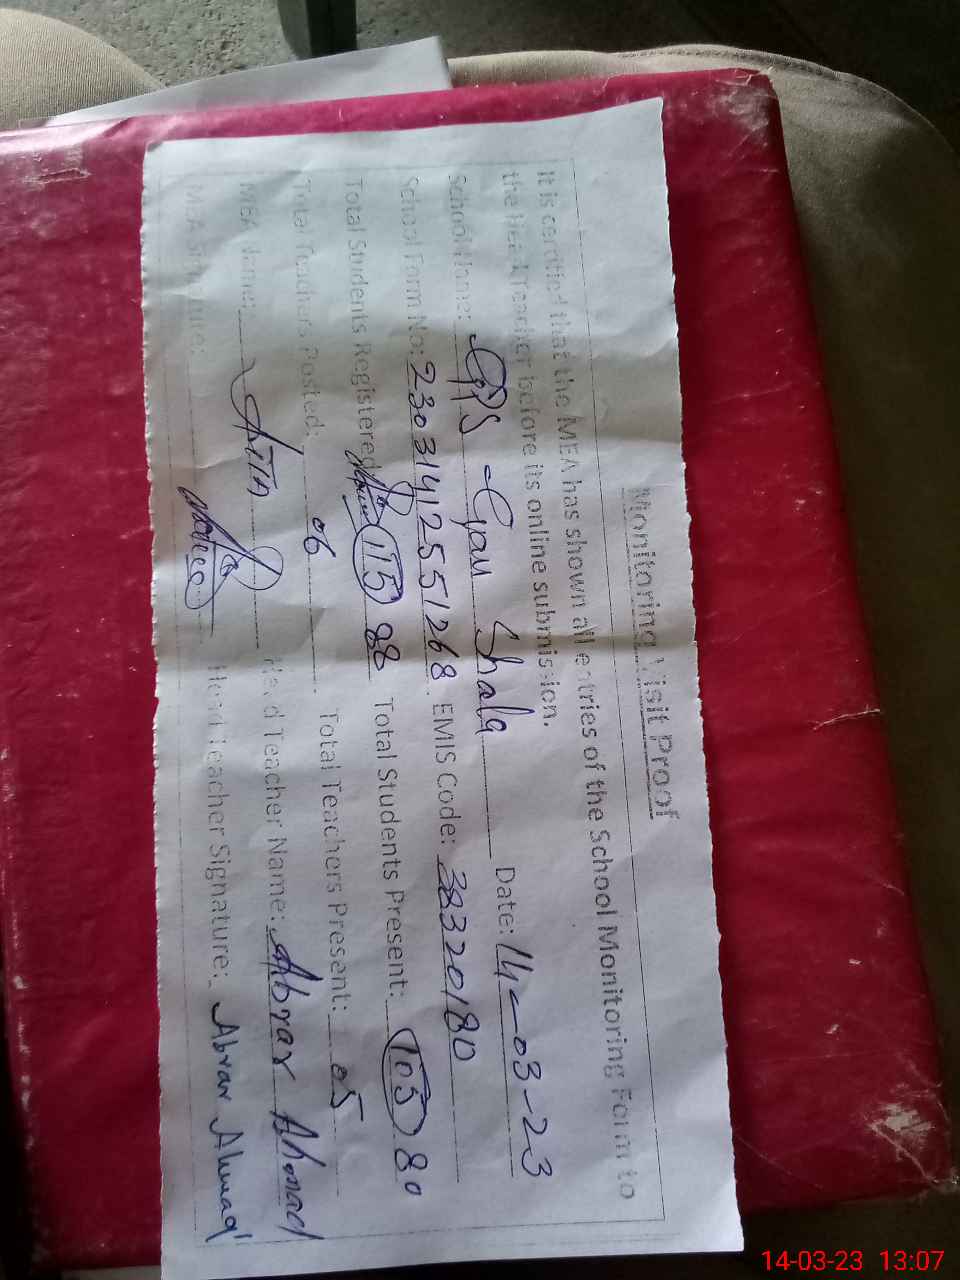 Monitoring Visit Proof
It is certified that the MEA has shown all entries of the School Monitoring Form to
the Head Teacher before its online submission.
School Name: GPS Gau Shala Date: 14-03-23
School Form No: 230314125551268 EMIS Code: 38320180
Total Students Registered: 115 88 Total Students Present: 105 80
Total Teachers Posted: 06 Total Teachers Present: 05
MEA Name: Head Teacher Name: Abrar Ahmad
MEA Signature: Head Teacher Signature: Abrar Ahmad
14-03-23 13:07